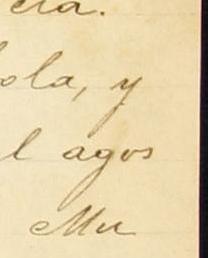 cia.
ola, y
l agos
Mu